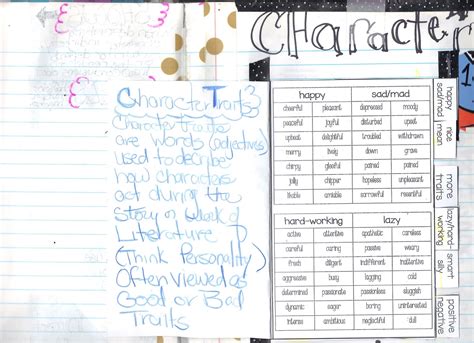 Character
Character Traits
Character traits
are words (adjectives)
used to describe
how characters
act during the
story or work of
Literature
(Think Personality)
Often viewed as
Good or Bad
Traits
happy sad/mad
cheerful pleasant depressed moody
peaceful joyful disturbed upset
upbeat delightful troubled withdrawn
merry lively down grave
chirpy gleeful pained
jolly chipper hopeless unpleasant
likable amiable sorrowful resentful
hard-working lazy
active attentive apathetic careless
careful caring passive weary
fresh diligent indifferent inattentive
aggressive busy lagging cold
determined passionate passionless sluggish
dynamic eager boring uninterested
intense ambitious neglectful dull
happy
sad/mad
nice
mean
more
traits
lazy/hard-
working
smart
silly
positive
negative